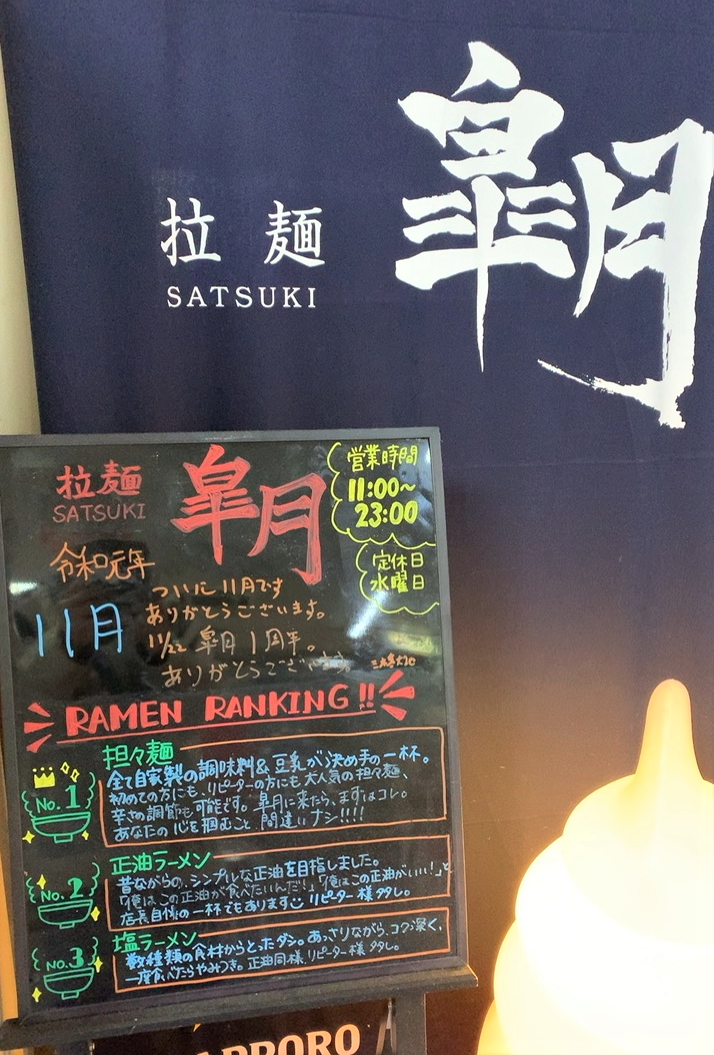 皐月
拉麺
SATSUKI
拉麺
SATSUKI
皐月
営業時間
11:00~
23:00
定休日
水曜日
令和元年
11月
ついに11月です
ありがとうございます。
11/22 皐月1周年。
ありがとうござ
RAMEN RANKING!!
No.1
担々麺
全て自家製の調味料&豆乳が決め手の一杯。
初めての方にも、リピーターの方にも大人気の担々麺、
辛さの調節も可能です。皐月に来たら、まずはコレ。
あなたの心を掴むこと間違いナシ!!!!
No.2
正油ラーメン
昔ながらの、シンプルな正油を目指しました。
「俺はこの正油が食べたいんだ!」「俺はこの正油がいい!」と
店長自慢の一杯でもあります リピーター様多し。
No.3
塩ラーメン
数種類の食材からとったダシ。あっさりながら、コク深く、
一度食べたらやみつき。正油同様、リピーター様多し。
PPORO